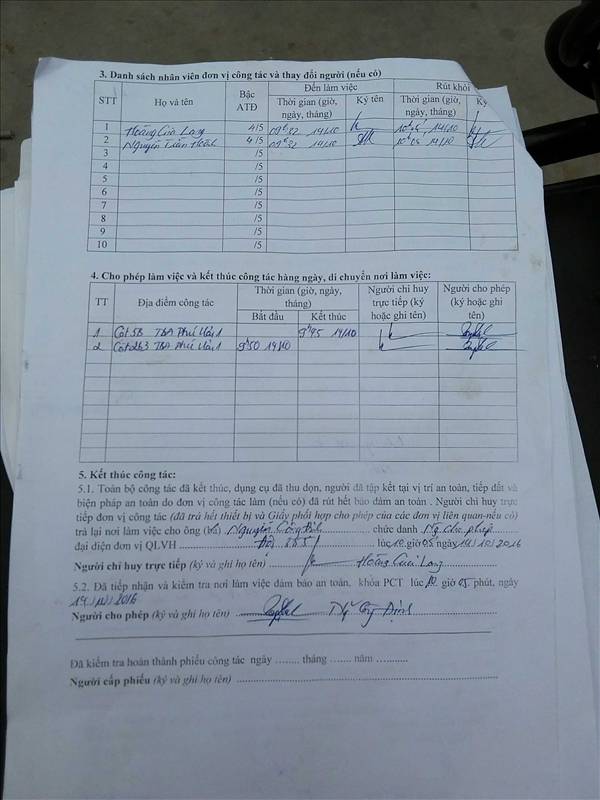 3. Danh sách nhân viên đơn vị công tác và thay đổi người (nếu có)
STT Họ và tên Bậc ATĐ Đến làm việc Rút khỏi
Thời gian (giờ, ngày, tháng) Ký tên Thời gian (giờ, ngày, tháng) Ký
1 Hoàng Cửu Long 4/5 14/10 14/10
2 Nguyễn Trần 4/5 14/10 10h05 14/10
3 /5
4 /5
5 /5
6 /5
7 /5
8 /5
9 /5
10 /5
4. Cho phép làm việc và kết thúc công tác hàng ngày, di chuyển nơi làm việc:
TT Địa điểm công tác Thời gian (giờ, ngày, tháng) Người chỉ huy trực tiếp (ký hoặc ghi tên) Người cho phép (ký hoặc ghi tên)
Bắt đầu Kết thúc
1 Cột 58 TBA Phú 1 9h45 14/10
2 Cột 263 TBA Phú 1 9h50 14/10
5. Kết thúc công tác:
5.1. Toàn bộ công tác đã kết thúc, dụng cụ đã thu dọn, người đã tập kết tại vị trí an toàn, tiếp đất và
biện pháp an toàn do đơn vị công tác làm (nếu có) đã rút hết bảo đảm an toàn . Người chỉ huy trực
tiếp đơn vị công tác (đã trả hết thiết bị và Giấy phối hợp cho phép của các đơn vị liên quan-nếu có)
trả lại nơi làm việc cho ông (bà) Nguyễn Công Định chức danh Ng cho phép
đại diện đơn vị QLVH Đội lúc 10 giờ 05 ngày 14/10/2016
Người chỉ huy trực tiếp (ký và ghi họ tên) Hoàng Cửu Long
5.2. Đã tiếp nhận và kiểm tra nơi làm việc đảm bảo an toàn. khóa PCT lúc 10 giờ 05 phút, ngày
14/10/2016
Người cho phép (ký và ghi họ tên) Định
Đã kiểm tra hoàn thành phiếu công tác ngày ........ tháng ....... năm ...........
Người cấp phiếu (ký và ghi họ tên)